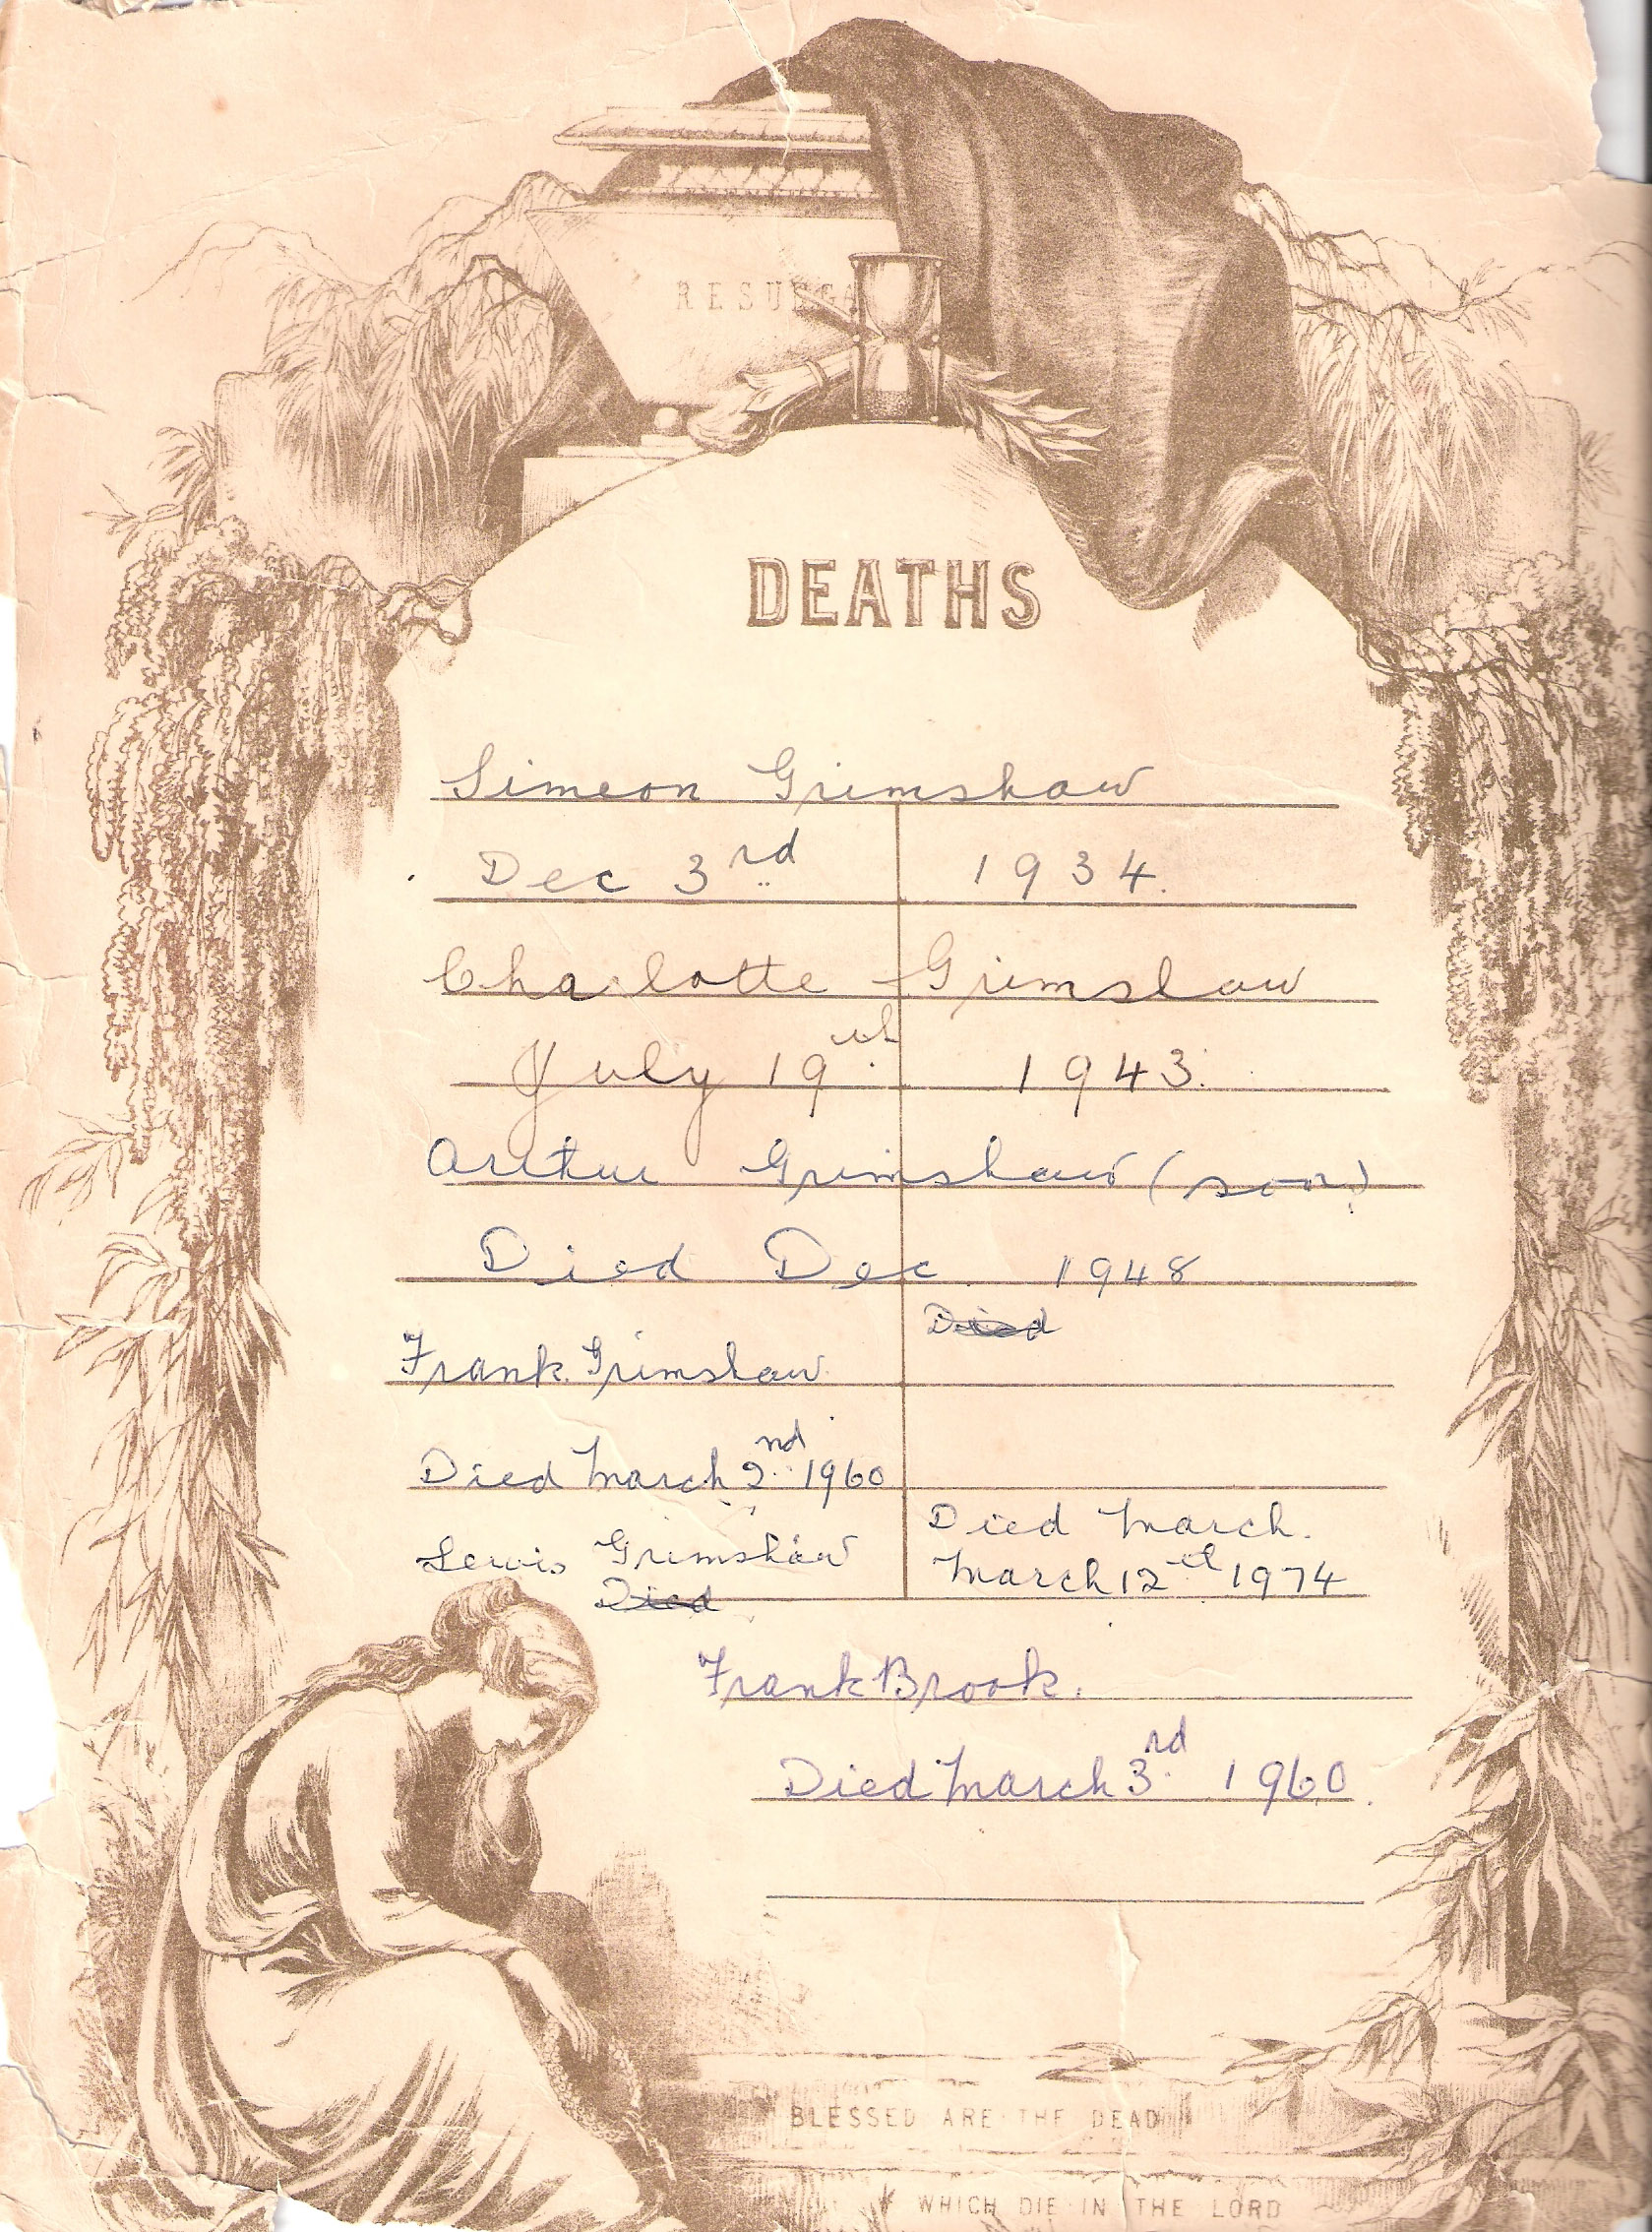 RESURGA
DEATHS
Simeon Grimshaw
Dec 3rd 1934.
Charlotte Grimslaw
July 19th 1943.
Arthur Grimshaw (son)
Died Dec 1948
Died
Frank Grimshaw
Died March 2nd 1960
Lewis Grimshaw
Died
Died March.
March 12th 1974
Frank Brook.
Died March 3rd 1960.
BLESSED ARE THE DEAD
WHICH DIE IN THE LORD